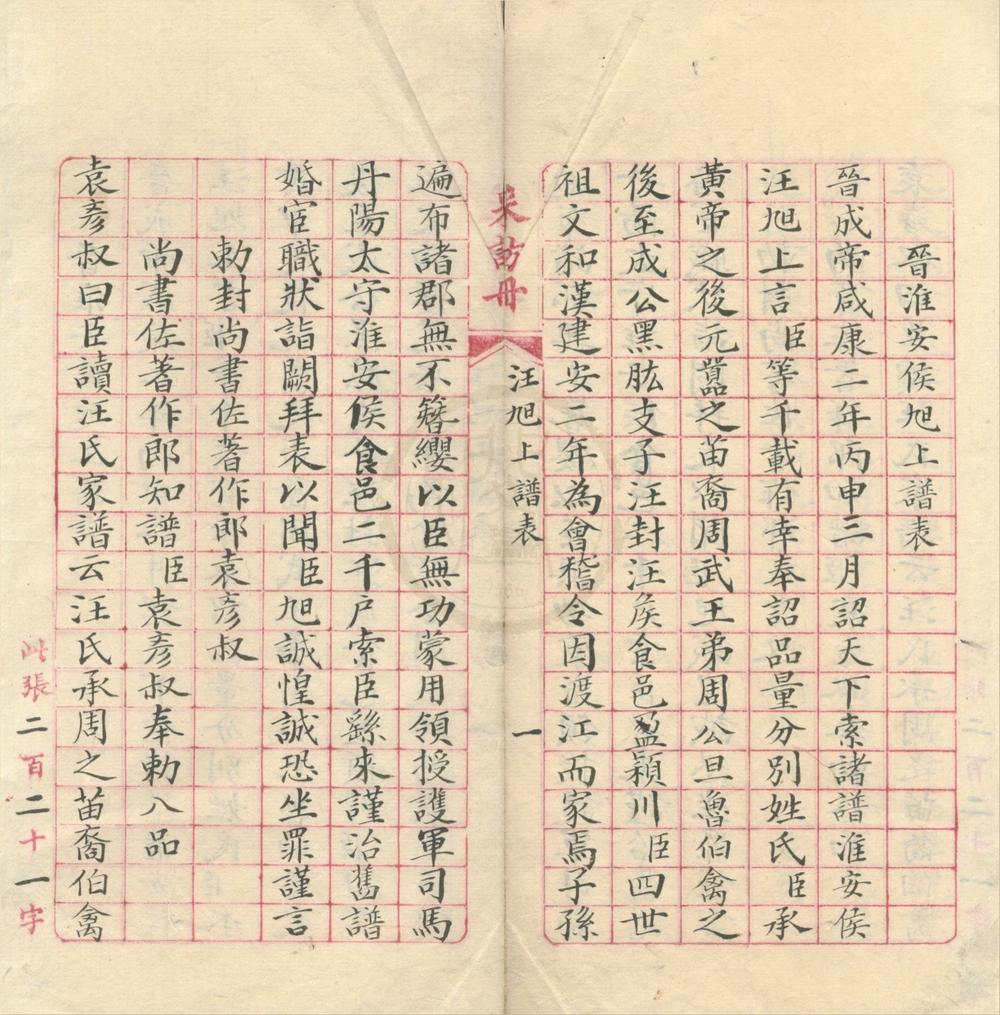 晉淮安侯旭上譜表
晉成帝咸康二年丙申三月詔天下索諸譜淮安侯
汪旭上言臣等千載有幸奉詔品量分別姓氏臣承
黃帝之後元囂之苗裔周武王弟周公旦魯伯禽之
後至成公黑肱支子汪封汪侯食邑盈潁川臣四世
祖文和漢建安二年為會稽令因渡江而家焉子孫
采訪冊
汪旭上譜表
一
遍布諸郡無不簪纓以臣無功蒙用領授護軍司馬
丹陽太守淮安侯食邑二千户索臣繇來謹治舊譜
婚宦職狀詣闕拜表以聞臣旭誠惶誠恐坐罪謹言
勅封尚書佐著作郎袁彥叔
尚書佐著作郎知譜臣袁彥叔奉勅八品
袁彥叔曰臣讀汪氏家譜云汪氏承周之苗裔伯禽
此張二百二十一字